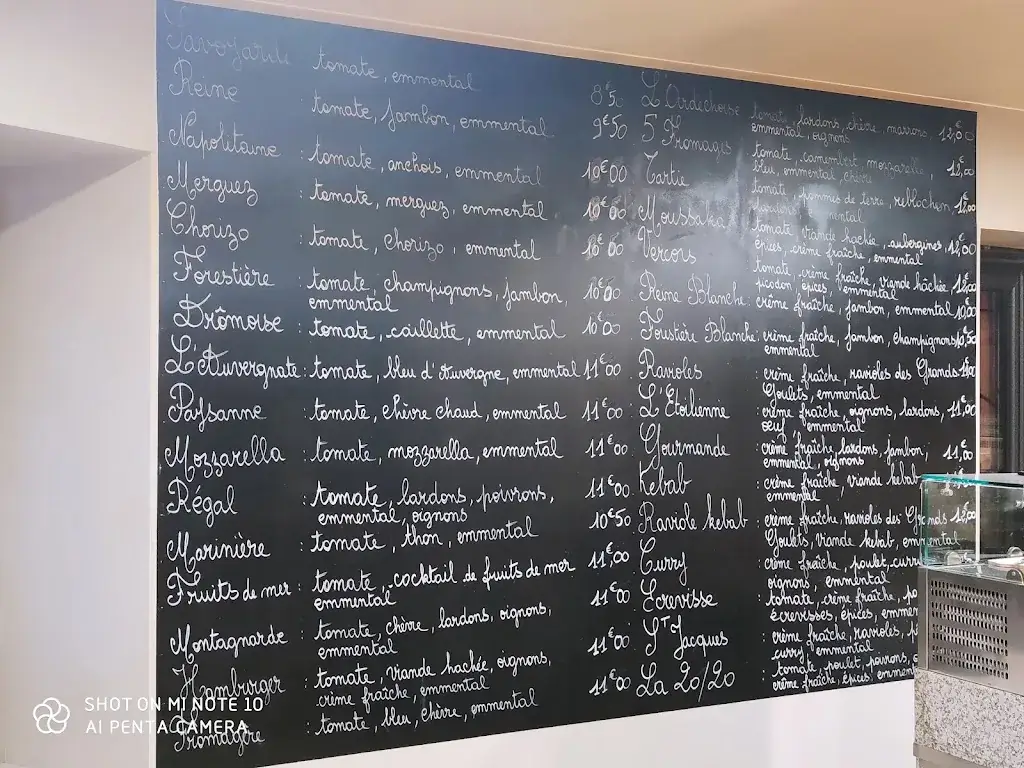 Savoyarde tomate, emmental 8€50
Reine : tomate, jambon, emmental 9€50
Napolitaine : tomate, anchois, emmental 10€00
Merguez : tomate, merguez, emmental 10€00
Chorizo : tomate, chorizo, emmental 10€00
Forestière : tomate, champignons, jambon, 10€00
emmental
Drômoise : tomate, caillette, emmental 10€00
L'Auvergnate : tomate, bleu d'Auvergne, emmental 11€00
Paysanne : tomate, chèvre chaud, emmental 11€00
Mozzarella : tomate, mozzarella, emmental 11€00
Régal : tomate, lardons, poivrons, 11€00
emmental, oignons
Marinière : tomate, thon, emmental 10€50
Fruits de mer : tomate, cocktail de fruits de mer 11,00
emmental
Montagnarde : tomate, chèvre, lardons, oignons, 11€00
emmental
Hamburger : tomate, viande hachée, oignons, 11€00
crème fraîche, emmental
Fromagère : tomate, bleu, chèvre, emmental 11€00
L'Ardéchoise tomate, lardons, chèvre, marrons, 12,00
emmental, oignons
5 Fromages tomate, camembert, mozzarella, 12,00
bleu, emmental, chèvre
Tartie tomate, pommes de terre, reblochon, 12,00
emmental
Moussaka tomate, viande hachée, aubergines, 12,00
épices, crème fraîche, emmental
Vercors tomate, crème fraîche, viande hâchée, 12,00
picodon, épices, emmental
Reine Blanche : crème fraîche, jambon, emmental 10,00
Foustière Blanche : crème fraîche, jambon, champignons, 10,50
emmental
Ravioles : crème fraîche, ravioles des Grands
Goulets, emmental
L'Etoilienne : crème fraîche, oignons, lardons, 11,00
œuf, emmental
Gourmande : crème fraîche, lardons, jambon, 11,00
emmental, oignons
Kebab : crème fraîche, viande kebab,
emmental
Raviole kebab : crème fraîche, ravioles des Grands 12,00
Goulets, viande kebab, emmental
Curry : crème fraîche, poulet, curry
oignons, emmental
Ecrevisse : tomate, crème fraîche,
écrevisses, épices,
St Jacques : crème fraîche, ravioles,
curry, emmental
La 20/20 : tomate, poulet, poivrons,
crème fraîche, épices,
SHOT ON MI NOTE 10
AI PENTA CAMERA